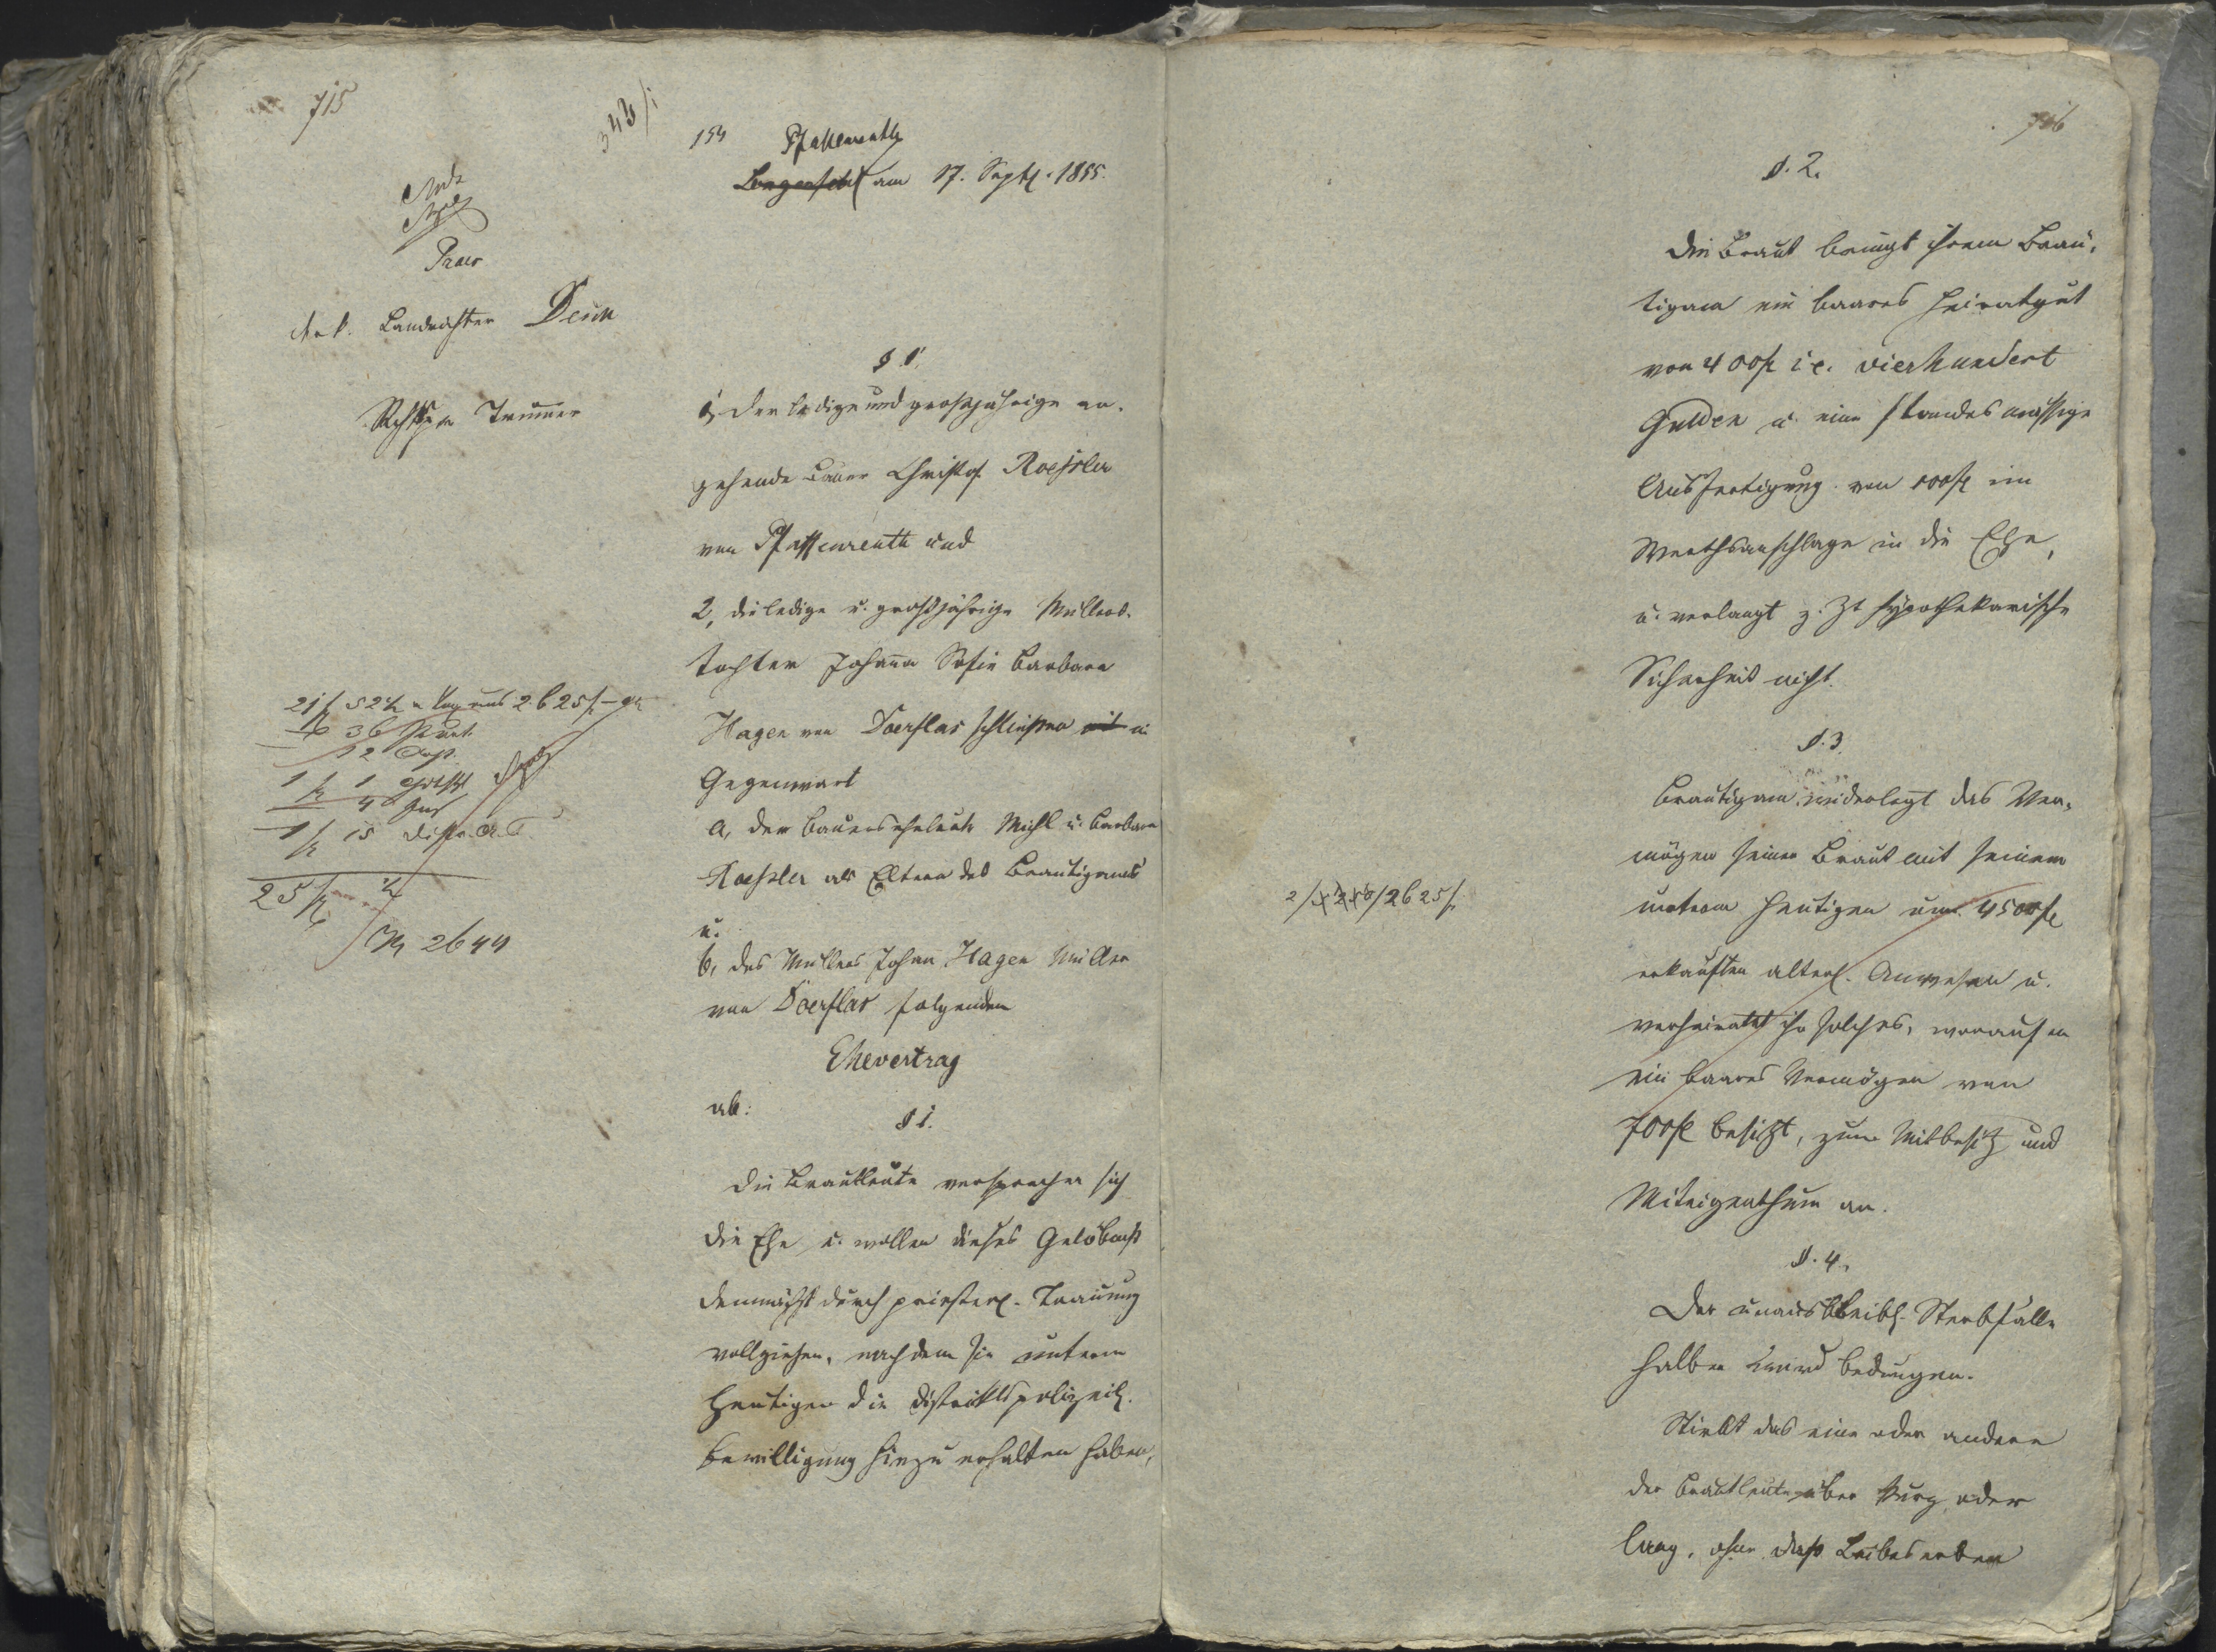 715
343/1
154 Pfaffenreuth
Langenfeld am 17. Septb. 1855.
Praes
Landrichter Desch
Trummer
§ 1.
1, der ledige und großjährige an-
gehende Bauer Christof Roessler
von Pfaffenreuth und
2, die ledige u. großjährige Müllers-
tochter Johanna Sofie Barbara
Hagen von Doerflas schließen mit in
Gegenwart
a, der Bauerseheleute Michl u. Barbara
Roessler als Eltern des Bräutigams
u.
b, des Müllers Johann Hagen Müller
von Doerflas folgenden
Ehevertrag
ab:
§ 1.
Die Brautleute versprechen sich
die Ehe u. wollen dieses Gelöbniß
demnächst durch priesterl. Trauung
vollziehen, nachdem sie unterm
Heutigen die distriktspolizeil.
Bewilligung hiezu erhalten haben,
21 f 52 x Tax aus 2625 f
36
12
1 f 1
4
1 f 15
25 f
2644
716
§. 2.
Die Braut bringt ihrem Bräu-
tigam ein baares Heiratgut
von 400 f i.e. vierhundert
Gulden u. eine standesmässige
Ausfertigung von 100 f im
Werthsanschlage in die Ehe,
u. verlangt z. Zt hypothekarische
Sicherheit nicht.
§. 3.
Bräutigam widerlegt das Ver-
mögen seiner Braut mit seinem
unterm Heutigen um 4500 f
erkauften älterl. Anwesen u.
verheiratet ihr solches, worauf er
ein baares Vermögen von
700 f besitzt, zum Mitbesitz und
Miteigenthum an.
2625 f
§. 4.
Der unausbleibl. Sterbfälle
halber wird bedungen.
Stirbt das eine oder andere
der Brautleute über kurz oder
lang, ohne daß Leibeserben